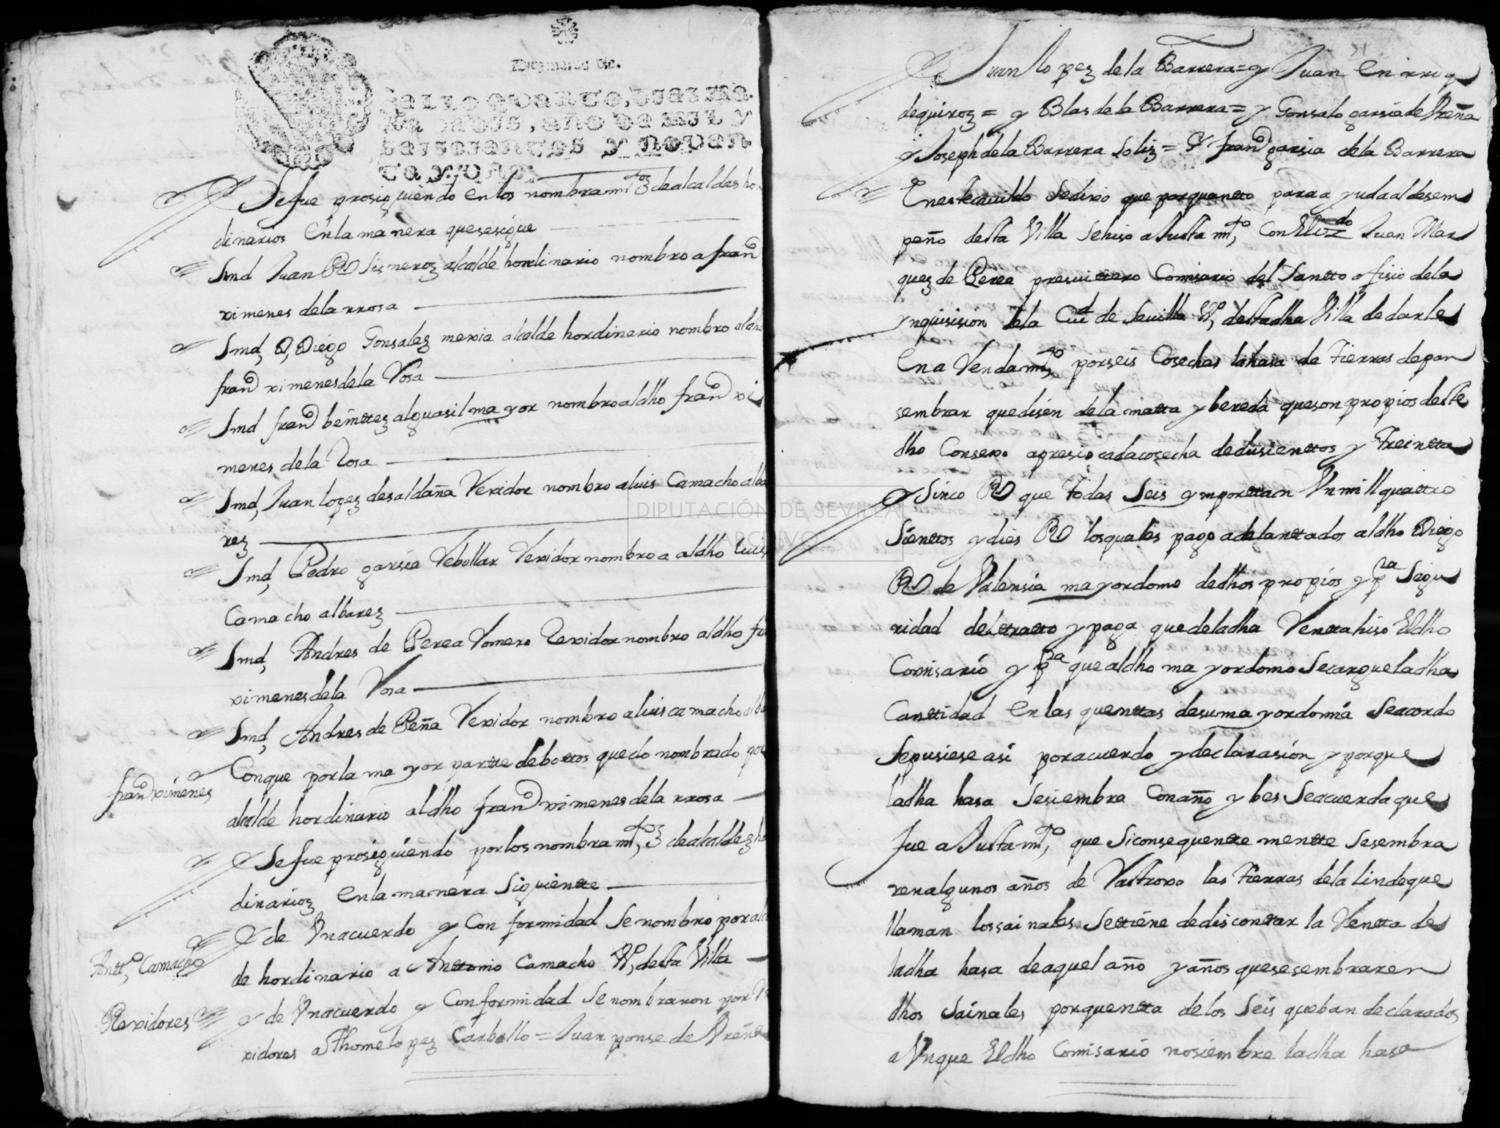 SELLO QVARTO, DIEZ MA-
RAVEDIS, AÑO DE MIL Y
SEISCIENTOS Y NOVEN-
TA Y VNO.
Se fue prosiguiendo en los nombramtos de alcaldes hor
dinarios En la manera que sesigue
Smd Juan Rs Sisneroz alcalde hordinario nombro a frano
ximenes de la rrosa
Smd, D, Diego Gonsalez mexia alcalde hordinario nombro al dho
frano ximenes de la Rosa
Smd frano benittez alguasil mayor nombro al dho frano xi
menes de la Rosa
Smd, Juan lopez desaldaña Rexidor nombro a luis Camacho alba
rez
Smd, Pedro garsia Rebollar Rexidor nombro a al dho luis
Camacho albarez
Smd, Andres de Perea Romero Rexidor nombro al dho fra
ximenes de la Rosa
Smd, Andres de Peña Rexidor nombro a luis camacho alba
frano ximenes
Conque por la mayor partte de bottos quedo nombrado por
alcalde hordinario al dho frano ximenes de la rrosa
Se fue prosiguiendo por los nombramtos de alcaldez ho
dinarioz En la manera Siguientte
Antto, Camacho
Y de Vn acuerdo y Conformidad Se nombro por alcal
de hordinario a Anttonio Camacho Vo, desta Villa
Rexidores
y de Vn acuerdo y Conformidad Se nombraron por R
xidores a Thome lopez Carballo = Juan ponse de
Juan lopez de la Barrera = y Juan Enrriq
de quiroz = y Blas de la Barrera = y Gonsalo garsia de Vreña
y Joseph de la Barrera Soliz = Y frano garsia de la Barrera
En este cavildo Se dixo que por quantto para ayuda al desem
peño desta Villa Sehiso a Justamto, Con El lizdo Juan Mar
quez de Perea presvittero Comisario del Santto ofisio de la
ynquisision de la Ciud de Sevilla Vo, desta dha Villa de darle
En a Rendamto, por seis Cosechas la hasa de tierras de pan
sembrar que disen de la matta y bereda que son propios deste
dho Consexo a presio cada cosecha de dusienttos y treintta
y Sinco Rs que todas Seis ymporttan Vn mill quattro
Sienttos y dies Rs los quales pago adelanttados al dho Diego
Rs de Valensia mayordomo de dhos propios y pra Segu
ridad del tratto y paga que de la dha Rentta hiso El dho
Comisario y pra que al dho mayordomo Se cargue la dha
Canttidad En las quenttas de su mayordomia Se acordo
Se pusiese asi por acuerdo y declarasion y porque
la dha hasa Se siembre Con año y bes Se acuerda que
fue a Justamto, que Si consequentte mentte Se sembra
ren algunos años de Rastroxo las tierras de la linde que
llaman los sainales Se ttiene de discontar la Rentta de
la dha hasa de aquel año y años que se sembraren
dhos Sainales por quentta de los Seis que ban declarados
a Vnque El dho Comisario no siembre la dha hasa
DIPUTACIÓN DE SEVILLA
ARCHIVO